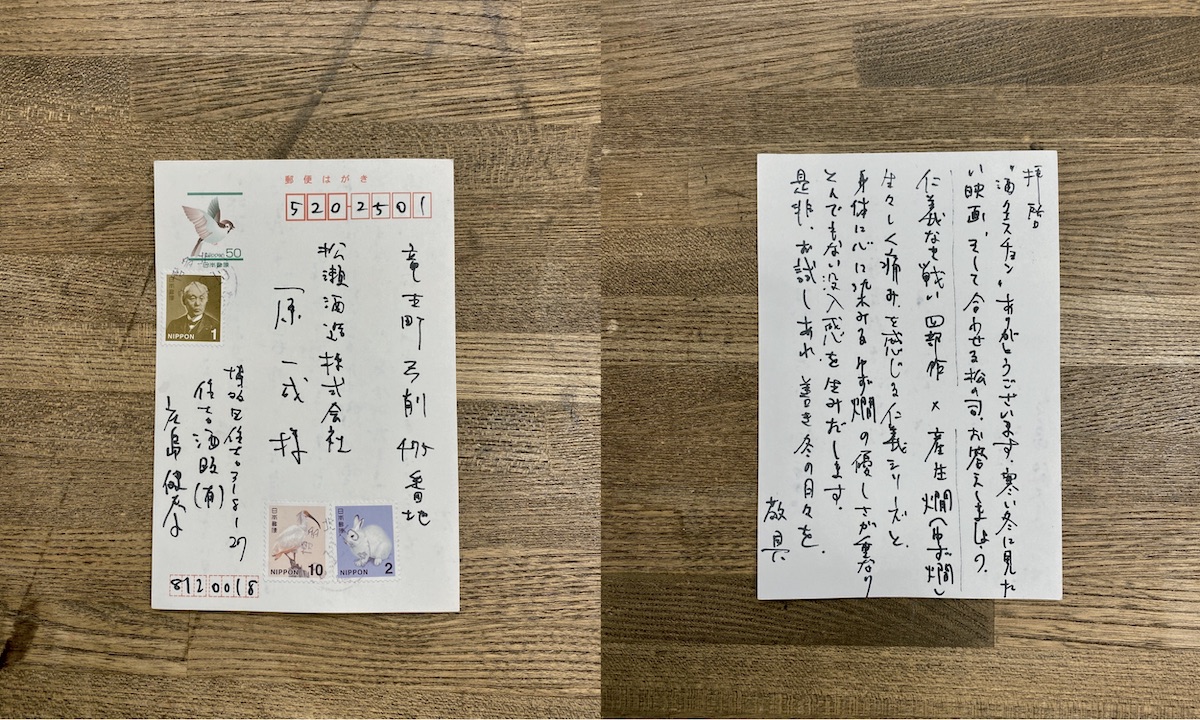 郵便はがき
5202501
竜王町弓削475番地
松瀬酒造株式会社
原一成様
50
日本郵便
日本郵便
NIPPON 1
博多区住吉3-8-27
住吉酒販(有)
庄島健泰
日本郵便
NIPPON 10
日本郵便
NIPPON 2
8120018
拝啓
"酒クエスチョン" ありがとうございます。寒い冬に見た
い映画、そして合わせる松の司。お答えしましょう。
仁義なき戦い 四部作 × 産生燗(ゆず燗)
生々しく痛みを感じる仁義シリーズと、
身体に心に沁みるゆず燗の優しさが重なり
とんでもない没入感を生みだします。
是非、お試しあれ 善き冬の日々を。
敬具